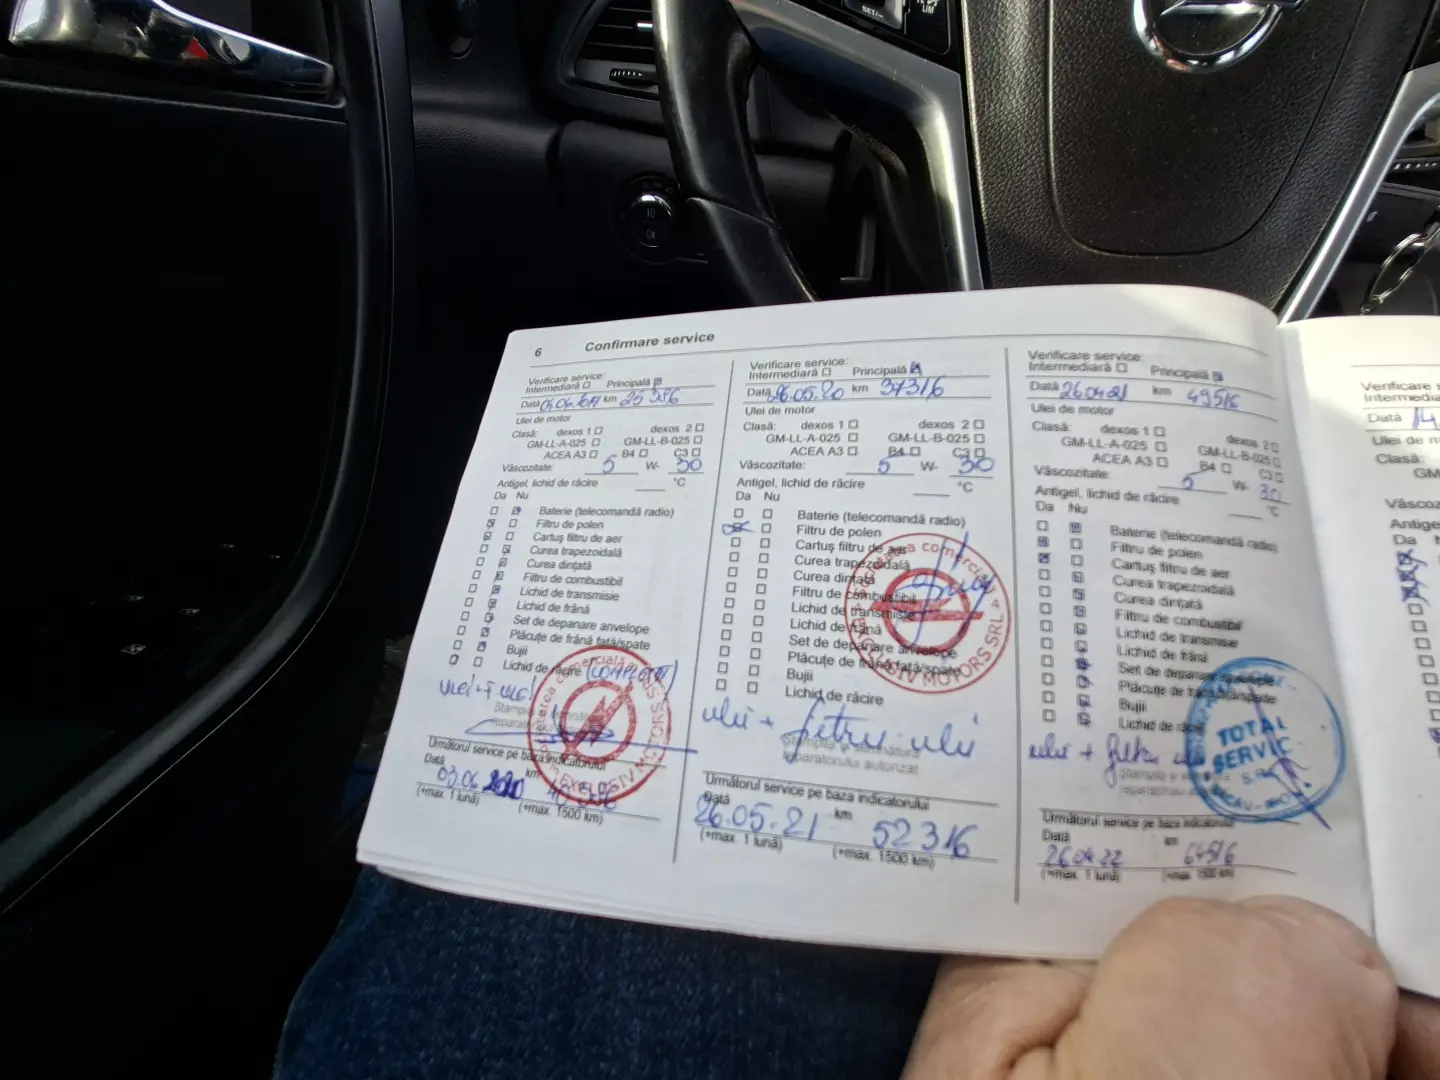 SET/–
LIM
6 Confirmare service
Verificare service:
Intermediară Principală
Data km 25 386
Ulei de motor
Clasă: dexos 1 dexos 2
GM-LL-A-025 GM-LL-B-025
ACEA A3 B4 C3
Vâscozitate: 5 W- 30
Antigel, lichid de răcire °C
Da Nu
Baterie (telecomandă radio)
Filtru de polen
Cartuş filtru de aer
Curea trapezoidală
Curea dinţată
Filtru de combustibil
Lichid de transmisie
Lichid de frână
Set de depanare anvelope
Plăcuţe de frână faţă/spate
Bujii
Lichid de răcire (COMPLETAT)
Următorul service pe baza indicatorului
Data km
03.06.2020
(+max. 1 lună) (+max. 1500 km)
Verificare service:
Intermediară Principală
Data 26.05.20 km 37316
Ulei de motor
Clasă: dexos 1 dexos 2
GM-LL-A-025 GM-LL-B-025
ACEA A3 B4 C3
Vâscozitate: 5 W- 30
Antigel, lichid de răcire °C
Da Nu
Baterie (telecomandă radio)
Filtru de polen
Cartuş filtru de aer
Curea trapezoidală
Curea dinţată
Filtru de combustibil
Lichid de transmisie
Lichid de frână
Set de depanare anvelope
Plăcuţe de frână faţă/spate
Bujii
Lichid de răcire
MOTORS SRL
ulei + filtru ulei
Ştampila şi semnătura
reparatorului autorizat
Următorul service pe baza indicatorului
Data km
26.05.21 52316
(+max. 1 lună) (+max. 1500 km)
Verificare service:
Intermediară Principală
Data 26.04.21 km 49516
Ulei de motor
Clasă: dexos 1 dexos 2
GM-LL-A-025 GM-LL-B-025
ACEA A3 B4 C3
Vâscozitate: 5 W- 30
Antigel, lichid de răcire °C
Da Nu
Baterie (telecomandă radio)
Filtru de polen
Cartuş filtru de aer
Curea trapezoidală
Curea dinţată
Filtru de combustibil
Lichid de transmisie
Lichid de frână
Set de depanare anvelope
Plăcuţe de frână faţă/spate
Bujii
Lichid de răcire
TOTAL
SERVIC
ulei + filtru
Următorul service pe baza indicatorului
Data km
26.04.22 64516
(+max. 1 lună) (+max. 1500 km)
Verificare
Data 14.
Clasă:
GM
Da